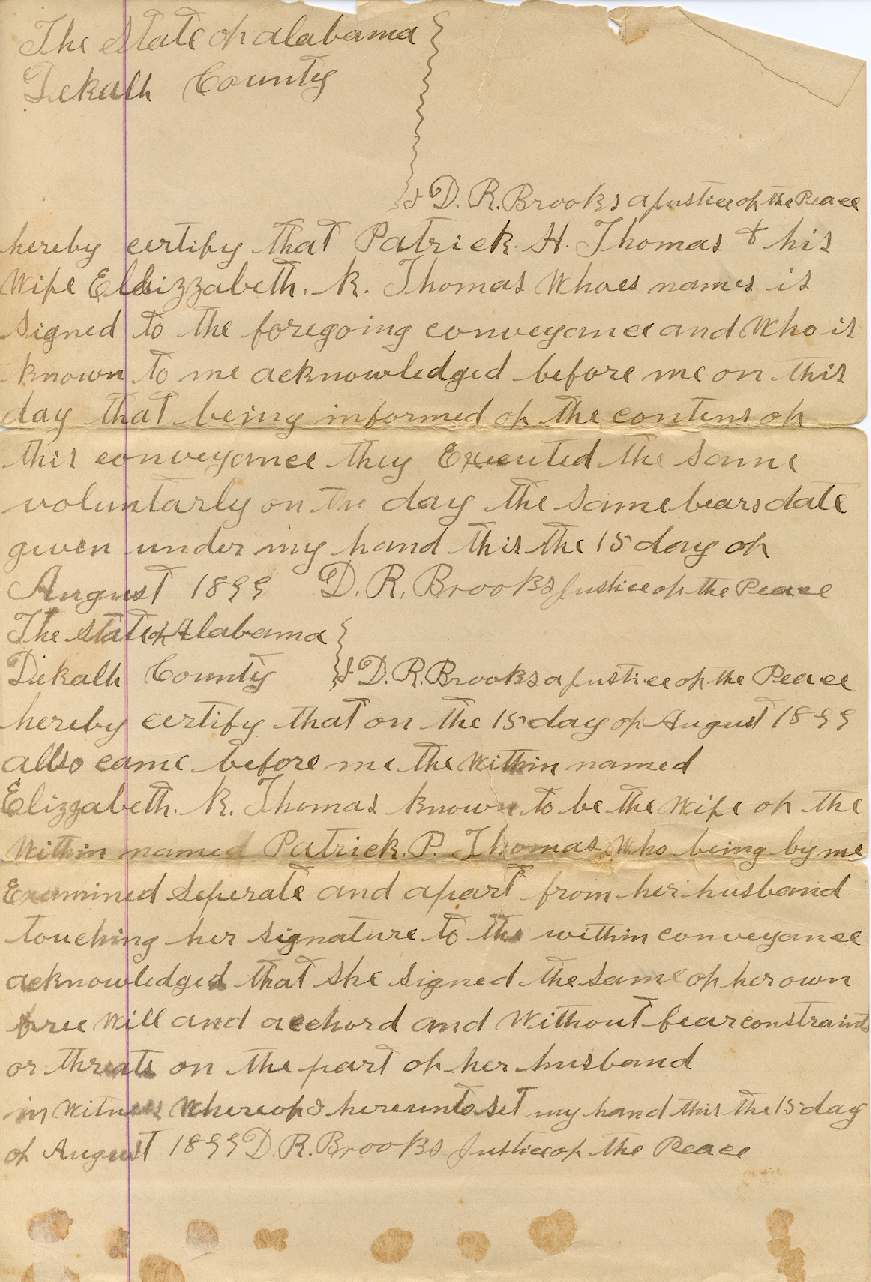 The State of alabama
Dekalb County
I D. R. Brooks a justice of the Peace
hereby certify that Patrick. H. Thomas & his
Wife Elizzabeth. K. Thomas Whoes names is
signed to the foregoing conveyance and Who is
known to me acknowledged before me on this
day that being informed of the contens of
this conveyance they Executed the same
voluntarly on the day the same bears date
given under my hand this the 15 day of
August 1899 D. R. Brooks Justice of the Peace
The State of Alabama
Dekalb County I D. R. Brooks a justice of the Peace
hereby certify that on the 15 day of August 1899
allso came before me the Within named
Elizzabeth. K. Thomas known to be the Wife of the
Within named Patrick. P. Thomas Who being by me
Examined seperate and apart from her husband
touching her signature to the within conveyance
acknowledged that she signed the same of her own
free Will and acchord and Without fear constraints
or threats on the part of her husband
in Witness Whereof I hereunto set my hand this the 15 day
of August 1899 D. R. Brooks Justice of the Peace